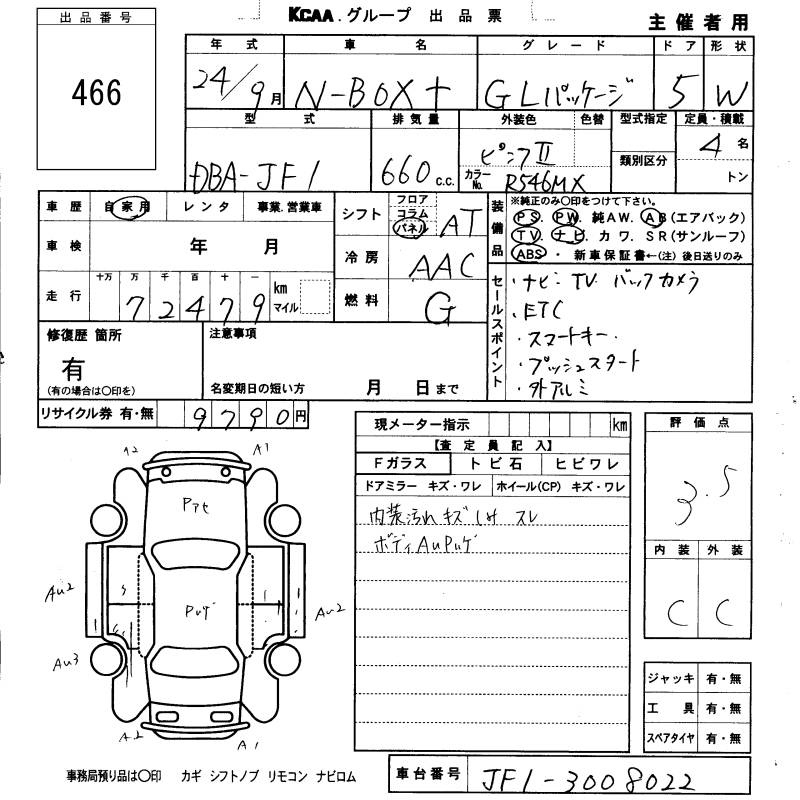 KCAA.グループ 出品票
主催者用
出品番号
466
年式 車名 グレード ドア 形状
24/9月 N-BOX+ GLパッケージ 5 W
型式 排気量 外装色 色替 型式指定 定員・積載
DBA-JF1 660c.c. ピンクⅡ 類別区分 4名
カラーNo. R546MX トン
車歴 自家用 レンタ 事業.営業車
シフト フロア コラム パネル AT
車検 年 月
冷房 AAC
走行 十万 万 千 百 十 一 km マイル
7 2 4 7 9
燃料 G
装備品
※純正のみ〇印をつけて下さい。
PS. PW. 純AW. AB(エアバック)
TV. ナビ. カワ. SR(サンルーフ)
ABS・ 新車保証書←(注) 後日送りのみ
セールスポイント
・ナビ・TV バックカメラ
・ETC
・スマートキー・
・プッシュスタート
・外アルミ
修復歴 箇所
有
(有の場合は〇印を)
注意事項
名変期日の短い方 月 日まで
リサイクル券 有・無 9790円
現メーター指示 km
【査定員記入】
Fガラス トビ石 ヒビワレ
ドアミラー キズ・ワレ ホイール(CP) キズ・ワレ
内装汚れ キズ シミ スレ
ボディAUPUゲ
評価点
3.5
内装 外装
C C
A2 A1
Pアセ
PUゲ
AU2 AU2
AU3
A2 A1
ジャッキ 有・無
工具 有・無
スペアタイヤ 有・無
事務局預り品は〇印 カギ シフトノブ リモコン ナビロム
車台番号 JF1-3008022